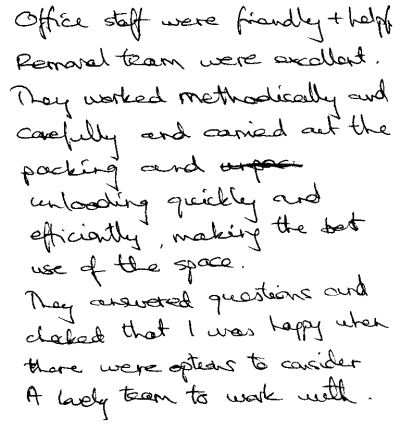 Office staff were friendly + helpf
Removal team were excellent.
They worked methodically and
carefully and carried out the
packing and
unloading quickly and
efficiently, making the best
use of the space.
They answered questions and
checked that I was happy when
there were options to consider
A lovely team to work with.